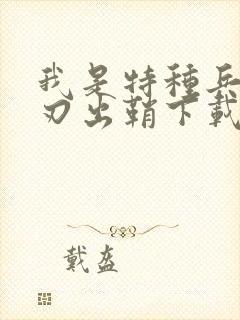 我是特種兵
刃出鞘下載
戴盔